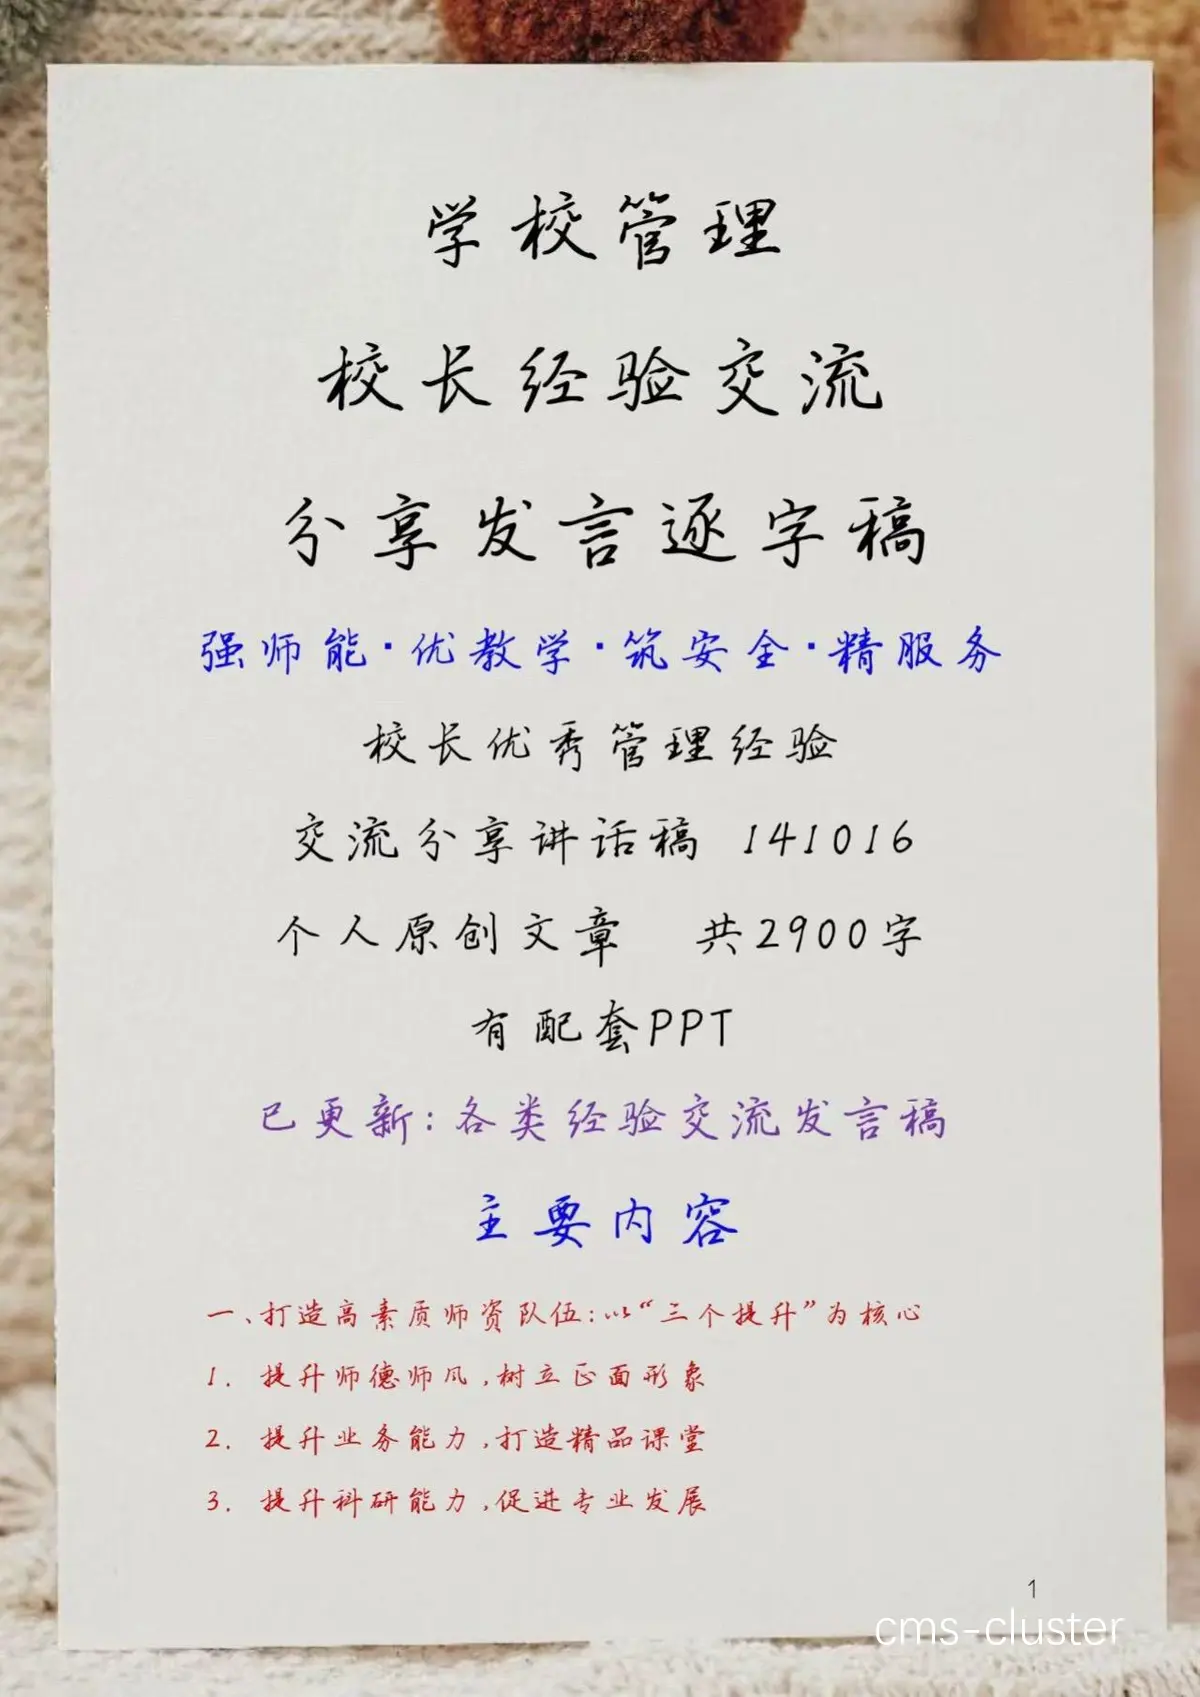 学校管理
校长经验交流
分享发言逐字稿
强师能·优教学·筑安全·精服务
校长优秀管理经验
交流分享讲话稿 141016
个人原创文章 共2900字
有配套PPT
已更新:各类经验交流发言稿
主要内容
一、打造高素质师资队伍:以“三个提升”为核心
1. 提升师德师风,树立正面形象
2. 提升业务能力,打造精品课堂
3. 提升科研能力,促进专业发展
1
cms-cluster